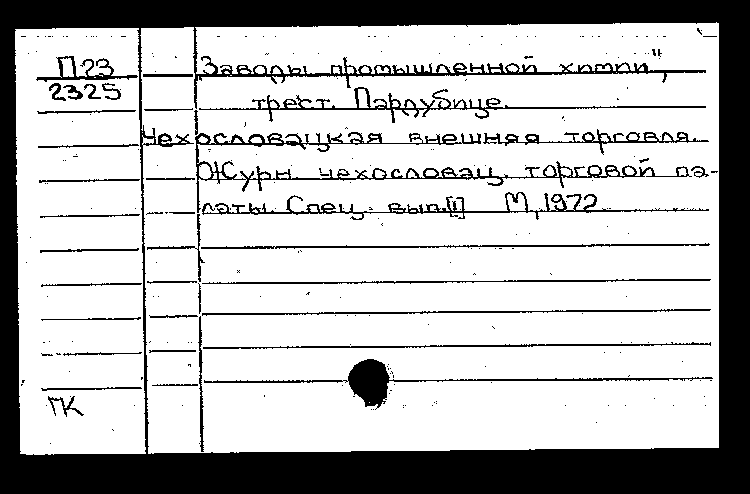 П23
2325
Заводы промышленной химии",
трест. Пардубице.
Чехословацкая внешняя торговля.
Журн. чехословац. торговой па-
латы. Спец. вып.[1] М, 1972
ГК